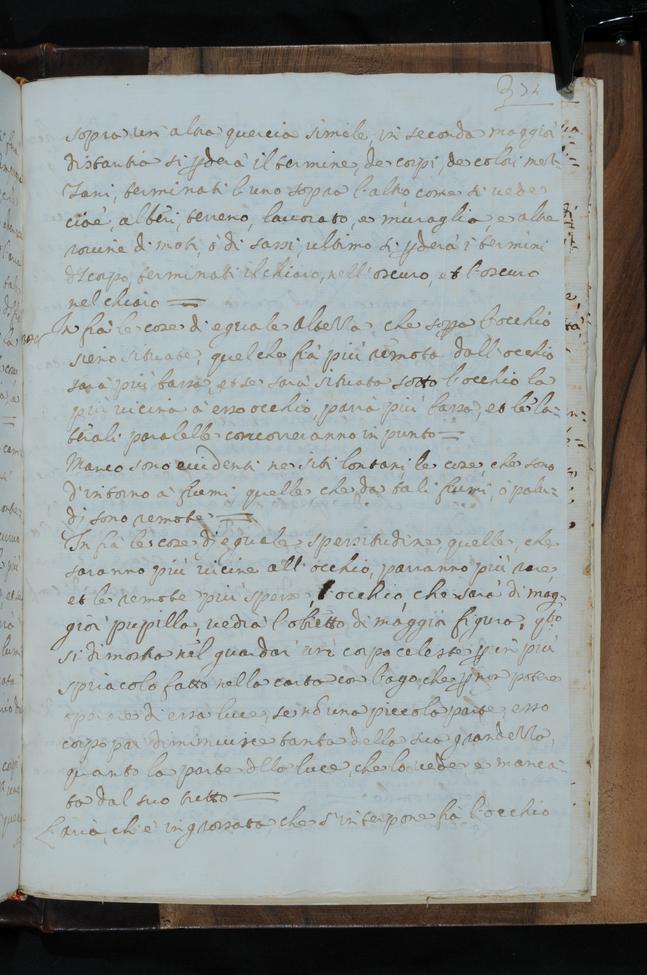 372
sopra un altra quercia simile, in seconda maggior
distantia si pderà il termine, de corpi, de colori mez-
zani, terminati l'uno sopra l'altro come si vede
cioè, alberi, terreno, lavorato, e muraglia, e altre
rovine di moti, ò di sassi, ultimo si pderà i termini
d'corpo, terminati il chiaro, nell'oscuro, et l'oscuro
nel chiaro =
In frà le cose di eguale altezza, che sopra l'occhio
sieno situate, quel che fià più remota dall'occhio
sarà più bassa, et se sarà situata sotto l'occhio la
più vicina à esso occhio, parrà più bassa, et le la-
terali paralelle concorreranno in punto =
Manco sono evidenti ne siti lontani le cose, che sono
d'intorno à fiumi, quelle che da tali fiumi, ò palu-
di sono remote =
In frà le cose di eguale spessitudine, quelle, che
saranno più vicine all'occhio, parranno più rare
et le remote più spesse, l'occhio che sarà di mag-
gior pupilla, vedrà l'obietto di maggior figura, qto
si dimostra nel guardar un corpo celeste p un più
spiracolo fatto nella carta con l'ago, che p non potere
operare di essa luce, se nò una piccola parte, esso
corpo par diminuisce tanta della sua grandezza,
quanto la parte dlla luce, che lo vede e manca-
ta dal suo tutto =
L'aria, ch'è ingrossata, che s'interpone frà l'occhio